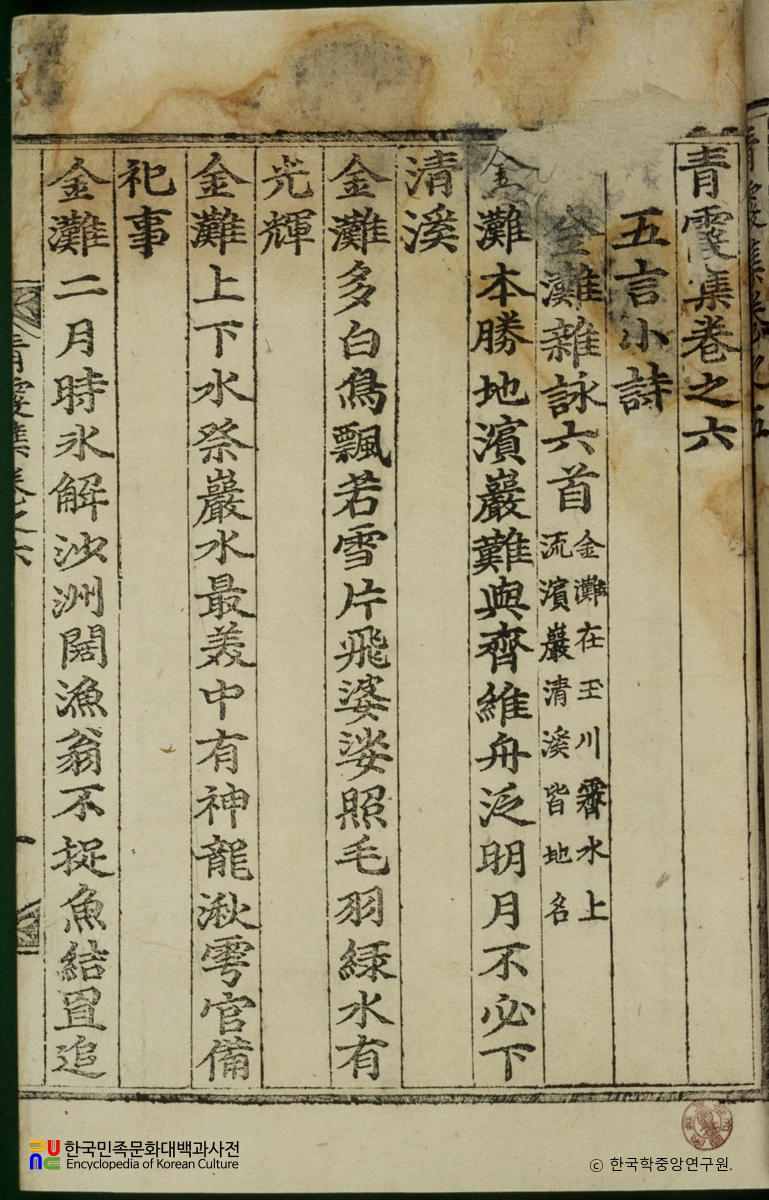 青霞集卷之六
五言小詩
金灘雜詠六首 金灘在玉川霽水上流濱巖清溪皆地名
金灘本勝地濱巖難與齊維舟泛明月不必下
清溪
金灘多白鳥飄若雪片飛婆娑照毛羽綠水有
光輝
金灘上下水祭巖水最美中有神龍湫雩官備
祀事
金灘二月時氷解沙洲闊漁翁不捉魚結罝追
青霞集卷之六
한국민족문화대백과사전
Encyclopedia of Korean Culture
ⓒ 한국학중앙연구원.